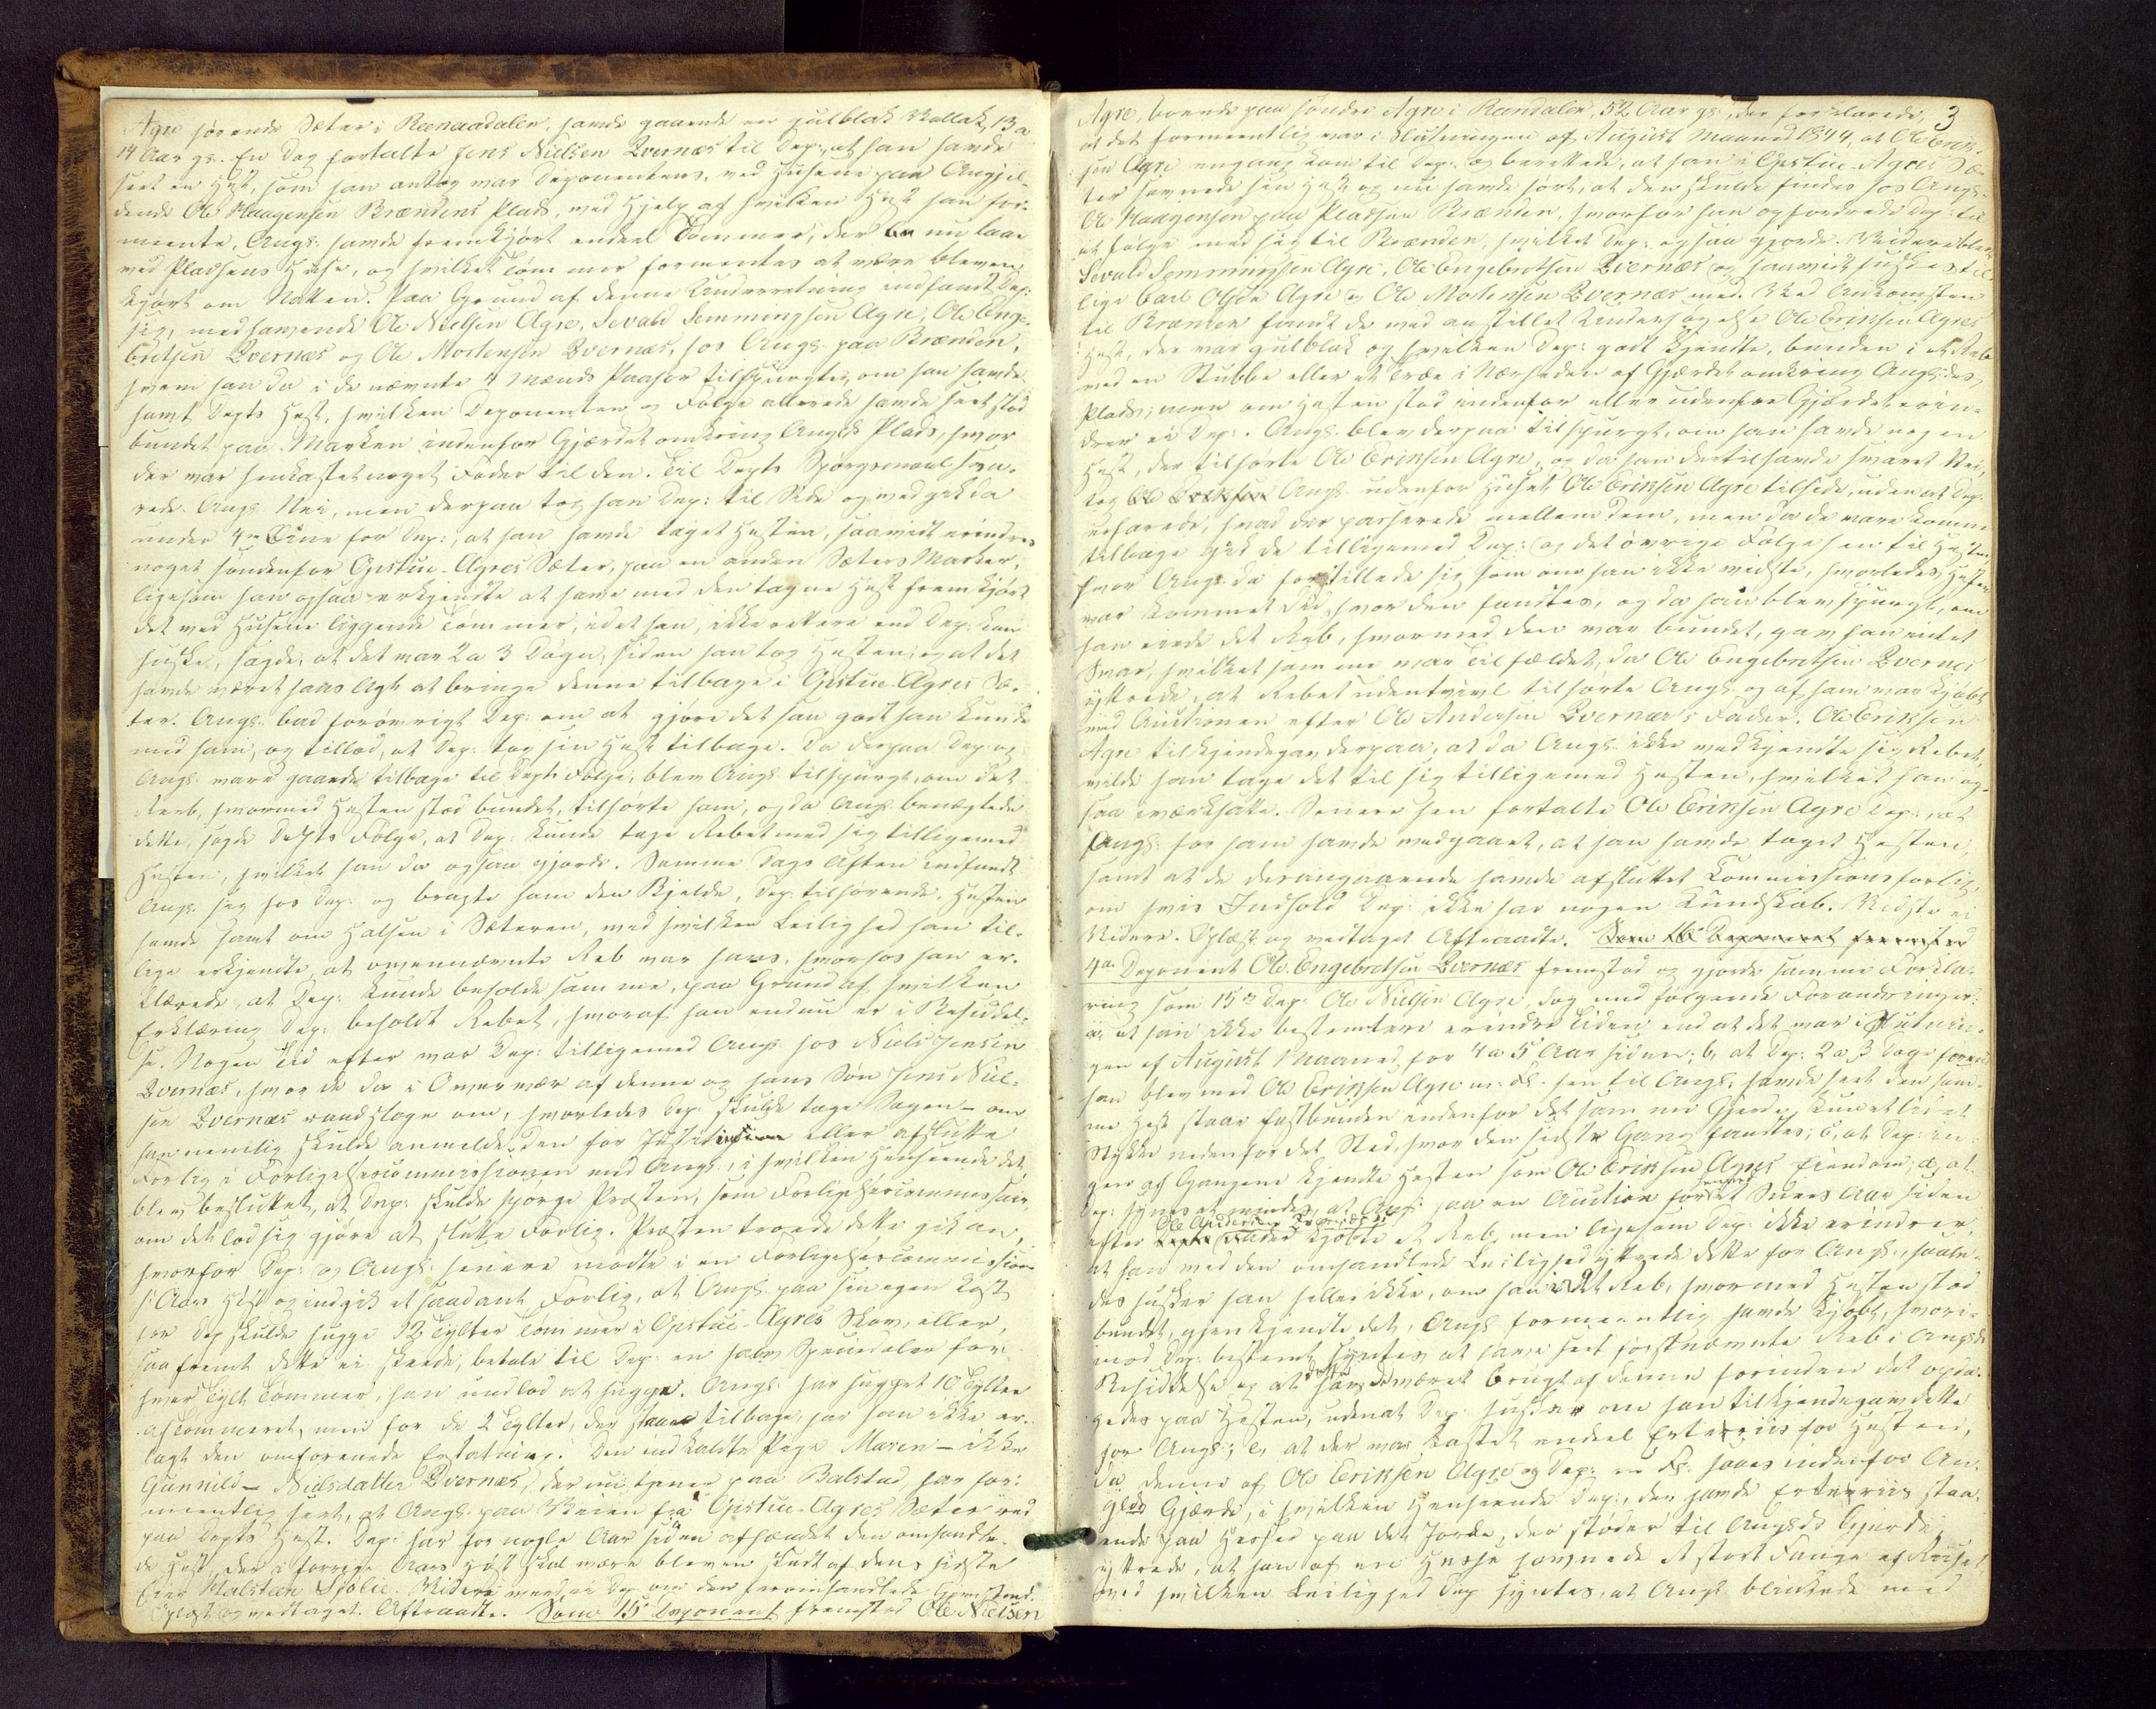 Agre hørende Sæter i Renaadalen, havde gaaende en gulblak Vallak, 13 a
14 Aar gl. En Dag fortalte Jens Nielsen Qvernæs til Dep:, at han havde
seet en Hest, som han antog var Deponentens, ved Husene paa Angjel-
dende Ole Haagensen Brændens Plads, ved Hjelp af hvilken Hest han for-
meente, Angl: havde fremkjørt endeel Tømmer, der nu laae
ved Pladsens Huse, og hvilket Tømmer formentes at være bleven
kjørt om Natten. Paa Grund af denne Underretning indfandt Dep:
sig, medhavende Ole Nielsen Agre, Sevald Semmingsen Agre, Ole Enge-
bretsen Qvernæs og Ole Mortensen Qvernæs, hos Angl. paa Brænden,
hvem han da i de nævnte 4 Mænds Paahør tilspurgte, om han havde
havt Depts Hest, hvilken Deponenten og Følge allerede havde seet stod
bundet paa Marken indenfor Gjærdet omkring Anglds Plads, hvor
der var henkastet noget Foder til den. Til Depts Spørgsmaal sva-
rede Angl. Nei, men derpaa tog han Dep: til Side og vedgik da
under 4re Øine for Dep:, at han havde taget Hesten, saavidt erindres
noget søndenfor Opstue-Agres Sæter, paa en anden Sæters Marker,
ligesom han ogsaa erkjendte at have med den tagne Hest fremkjørt
det ved Husene liggende Tømmer, idet han, ikke rettere end Dep. kan
huske, sagde, at det var 2 a 3 Døgn, siden han tog Hesten, og at det
havde været hans Agt at bringe denne tilbage i Opstue-Agres Sæ-
ter. Angl. bad forøvrigt Dep: om at gjøre det saa godt han kunde
med ham, og tillod, at Dep: tog sin Hest tilbage. Da derpaa Dep: og
Angl. vare gaaede tilbage til Depts Følge, blev Angl. tilspurgt, om det
Reeb, hvormed Hesten stod bundet, tilhørte ham, og da Angl. benægtede
dette, sagde Depts Følge, at Dep: kunde tage Rebet med sig tilligemed
Hesten, hvilket han da ogsaa gjorde. Samme Dags Aften indfandt
Angl. sig hos Dep: og bragte ham den Bjelde, Dep: tilhørende, Hesten
havde havt om Halsen i Sæteren, ved hvilken Leilighed han til-
lige erkjendte, at ovennævnte Reb var hans, hvorhos han er-
klærede, at Dep: kunde beholde samme, paa Grund af hvilken
Erklæring Dep: beholdt Rebet, hvoraf han endnu er i Besiddel-
se. Nogen Tid efter var Dep: tilligemed Angl. hos Niels Jensen
Qvernæs, hvor de da i Overvær af denne og hans Søn Jens Niel-
sen Qvernæs raadsloge om, hvorledes Dep: skulde tage Sagen - om
han nemlig skulde anmelde den for Justitien eller afslutte
Forlig i Forligelsescommissionen med Angl., i hvilken Henseende det
blev besluttet, at Dep: skulde spørge Præsten, som Forligelsescommissair,
om det lod sig gjøre at slutte Forlig. Præsten troede dette gik an,
hvorfor Dep: og Angl: senere mødte i en Forligelsescommission
s: Aars Høst og indgik et saadant Forlig, at Angl. paa sin egen Kost
for Dep: skulde hugge 12 Tylter Tømmer i Opstue-Agres Skov, eller,
saafremt dette ei skeede, betale til Dep: en halv Speciedaler for
hver Tylt Tømmer, han undlod at hugge. Angl. har hugget 10 Tylter
af Tømmeret, men for de 2 Tylter, der staaer tilbage, har han ikke er-
lagt den omforenede Erstatning. Den indkaldte Pige Maren - ikke
Gunnild - Nilsdatter Qvernæs, der nu tjener paa Balstad, har for-
meentlig seet, at Angl. paa Veien fra Opstue-Agres Sæter red
paa Depts Hest. Dep: har for nogle Aar siden afhændet den omhandle-
de Hest, der i forrige Aars Høst skal være bleven skudt af dens sidste
Eier Halstæn Sjølie. Videre veed ei Dep. om den heromhandlede Gjenstand.
Oplæst og vedtaget. Aftraadte. Som 15 Deponent fremstod Ole Nielsen
3
Agre, boende paa søndre Agre i Rendalen, 52 Aar gl., der forklarede,
at det formeentlig var i Slutningen af August Maaned 1844, at Ole Erik-
sen Agre engang kom til Dep: og berettede, at han i Opstue-Agres Sæ-
ter savnede sin Hest og nu havde hørt, at den skulde findes hos Angl:
Ole Haagensen paa Pladsen Brænden, hvorfor han opfordrede Dep: til
at følge med sig til Brænden, hvilket Dep: ogsaa gjorde. Videre blev
Sevald Semmingsen Agre, Ole Engebretsen Qvernæs og saavidt huskes til-
lige Carl Olsen Agre og Ole Mortensen Qvernæs med. Ved Ankomsten
til Brænden fandt de ved anstillet Undersøgelse Ole Eriksen Agres
Hest, der var gulblak og hvilken Dep: godt kjendte, bunden i et Reb
ved en Stubbe eller et Træe i Nærheden af Gjærdet omkring Anglds
Plads; men om Hesten stod indenfor eller udenfor Gjærdet erin-
drer ei Dep:. Angl. blev derpaa tilspurgt, om han havde nogen
Hest, der tilhørte Ole Eriksen Agre, og da han dertil havde svaret Nei,
tog Ole Eriksen Angl. udenfor Huset Ole Eriksen Agre tilside, uden at Dep:
erfarede, hvad der passerede mellem dem, men da de vare komne
tilbage gik de tilligemed Dep: og det øvrige Følge hen til Hesten,
hvor Angl. da forstillede sig som om han ikke vidste, hvorledes Hesten
var kommet did, hvor den fandtes, og da han blev spurgt, om
han eiede det Reb, hvormed den var bundet, gav han intet
Svar, hvilket samme var Tilfældet, da Ole Engebretsen Qvernæs
yttrede, at Rebet udentvivl tilhørte Angl. og af ham var kjøbt
ved Auctionen efter Ole Andersen Qvernæs's Fader. Ole Eriksen
Agre tilkjendegav derpaa, at da Angl. ikke vedkjendte sig Rebet,
vilde han tage det til sig tilligemed Hesten, hvilket han og-
saa iværksatte. Senere hen fortalte Ole Eriksen Agre Dep:, at
Angl. for ham havde vedgaaet, at han havde taget Hesten,
samt at de derangaaende havde afsluttet Commissionsforlig,
om hvis Indhold Dep: ikke har nogen Kundskab. Vidste ei
Videre. Oplæst og vedtaget. Aftraadte. Som 16de Deponent fremstod
4a Deponent Ole Engebretsen Qvernæs fremstod og gjorde samme Forkla-
ring som 15de Dep: Ole Nielsen Agre, dog med følgende Forandringer:
a, at han ikke bestemtere erindrer Tiden end at det var i Slutnin-
gen af August Maaned for 4 a 5 Aar siden; b, at Dep: 2 a 3 Dage forend
han blev med Ole Eriksen Agre m: Fl. hen til Angl. havde seet den sam-
me Hest staae fastbunden indenfor det samme Gjerde, kun et lidet
Stykke nedenfor det Sted, hvor den sidste Gang fandtes; c, at Dep: in-
gen af Gangene kjendte Hesten som Ole Eriksen Agres Eiendom; d, at
Dep: synes at mindes, at Angl. paa en Auction for Aar siden
efter Ole Andersens Qvernæs's Fader kjøbte et Reb, men ligesom Dep: ikke erindrer,
at han ved den omhandlede Leilighed yttrede dette for Angl., saale-
des husker han heller ikke, om han i det Reb, hvormed Hesten stod
bundet, gjenkjendte det, Angl. formeentlig havde kjøbt, hvori-
mod Dep: bestemt syntes at have seet førstnævnte Reb i Anglds
Besiddelse og at det havde været brugt af denne forinden det opda-
gedes paa Hesten, uden at Dep: husker om han tilkjendegav dette
for Angl.; e, at der var kastet endeel Erteriis for Hesten,
da denne af Ole Eriksen Agre og Dep: m: Fl: saaes indenfor An-
glds Gjærde, i hvilken Henseende Dep:, der havde Erteriis staa-
ende paa Hesjer paa den Jorde, der støder til Anglds Gjerde,
yttrede, at han af een Hesje savnede et stort Fange af Riiset,
ved hvilken Leilighed Dep: syntes, at Angl. blinkede med